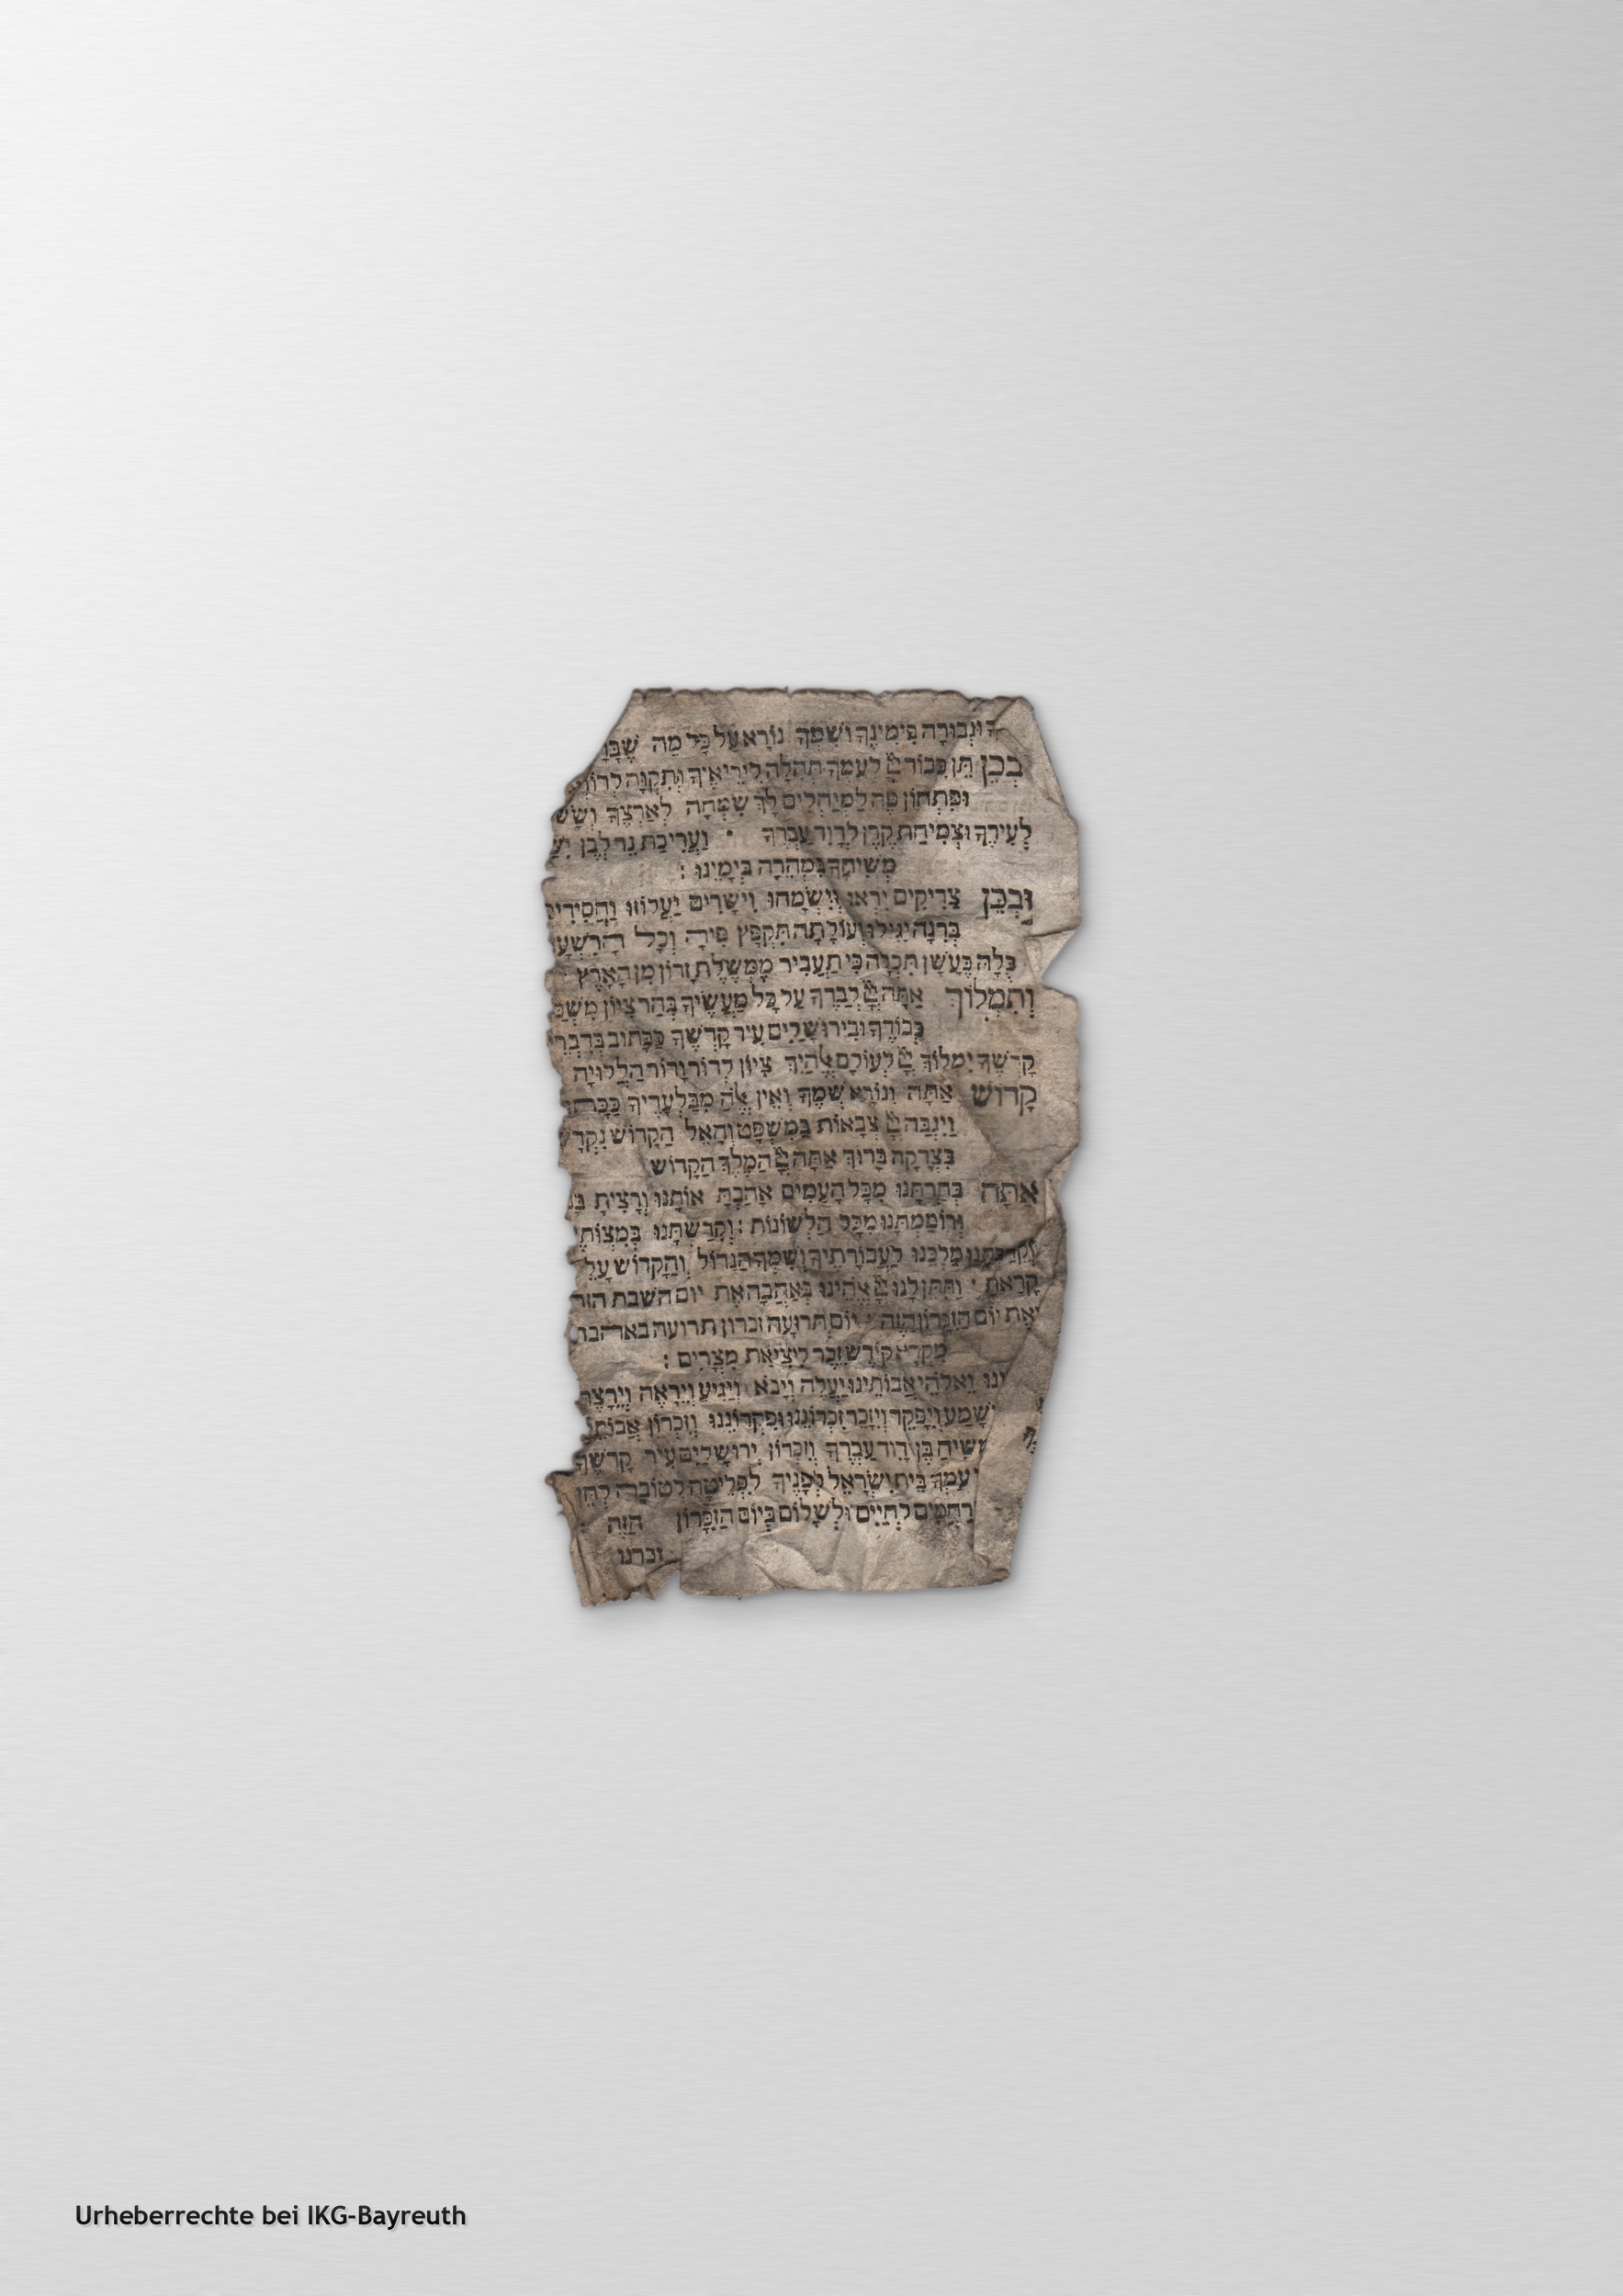 וּגְבוּרָה בִּימִינֶךָ וְשִׁמְךָ נוֹרָא עַל כָּל מַה
בְכֵן תֵּן כָּבוֹד לְעַמְּךָ תְּהִלָּה לִירֵיאֶיךָ וְתִקְוָה
וּפִתְחוֹן פֶּה לַמְיַחֲלִים לָךְ שִׂמְחָה לְאַרְצֶךָ
לְעִירֶךָ וּצְמִיחַת קֶרֶן לְדָוִד עַבְדֶּךָ וַעֲרִיכַת נֵר לְבֶן
מְשִׁיחֶךָ בִּמְהֵרָה בְיָמֵינוּ :
וּבְכֵן צַדִּיקִים יִרְאוּ וְיִשְׂמָחוּ וִישָׁרִים יַעֲלוֹזוּ
בְּרִנָּה יָגִילוּ וְעוֹלָתָה תִּקְפָּץ פִּיהָ וְכָל
כֻּלָּהּ כֶּעָשָׁן תִּכְלֶה כִּי תַעֲבִיר מֶמְשֶׁלֶת זָדוֹן מִן הָאָרֶץ
וְתִמְלוֹךְ אַתָּה לְבַדֶּךָ עַל כָּל מַעֲשֶׂיךָ בְּהַר צִיּוֹן
כְּבוֹדֶךָ וּבִירוּשָׁלַיִם עִיר קָדְשֶׁךָ כַּכָּתוּב
קָדְשֶׁךָ יִמְלוֹךְ לְעוֹלָם צִיּוֹן לְדוֹר וָדוֹר הַלְלוּיָהּ
קָדוֹשׁ אַתָּה וְנוֹרָא שְׁמֶךָ וְאֵין מִבַּלְעָדֶיךָ
וַיִּגְבַּהּ צְבָאוֹת בַּמִּשְׁפָּט וְהָאֵל הַקָּדוֹשׁ
בִּצְדָקָה בָּרוּךְ אַתָּה הַמֶּלֶךְ הַקָּדוֹשׁ
אַתָּה בְחַרְתָּנוּ מִכָּל הָעַמִּים אָהַבְתָּ אוֹתָנוּ וְרָצִיתָ
וְרוֹמַמְתָּנוּ מִכָּל הַלְּשׁוֹנוֹת : וְקִדַּשְׁתָּנוּ
וְקֵרַבְתָּנוּ מַלְכֵּנוּ לַעֲבוֹדָתֶיךָ וְשִׁמְךָ הַגָּדוֹל וְהַקָּדוֹשׁ
קָרָאתָ וַתִּתֵּן לָנוּ בְּאַהֲבָה אֶת יוֹם השבת הזה
אֶת יוֹם הַזִּכָּרוֹן הַזֶּה יוֹם תְּרוּעָה זכרון תרועה
מִקְרָא קוֹדֶשׁ זֵכֶר לִיצִיאַת מִצְרָיִם :
וֵאלֹהֵי אֲבוֹתֵינוּ יַעֲלֶה וְיָבֹא וְיַגִּיעַ וְיֵרָאֶה
וְיִפָּקֵד וְיִזָּכֵר זִכְרוֹנֵנוּ וּפִקְדוֹנֵנוּ וְזִכְרוֹן
בֶּן דָּוִד עַבְדֶּךָ וְזִכְרוֹן יְרוּשָׁלַיִם עִיר קָדְשֶׁךָ
עַמְּךָ בֵּית יִשְׂרָאֵל לְפָנֶיךָ לִפְלֵיטָה לְטוֹבָה
לְחַיִּים וּלְשָׁלוֹם בְּיוֹם הַזִּכָּרוֹן הַזֶּה
זכרנו
Urheberrechte bei IKG-Bayreuth